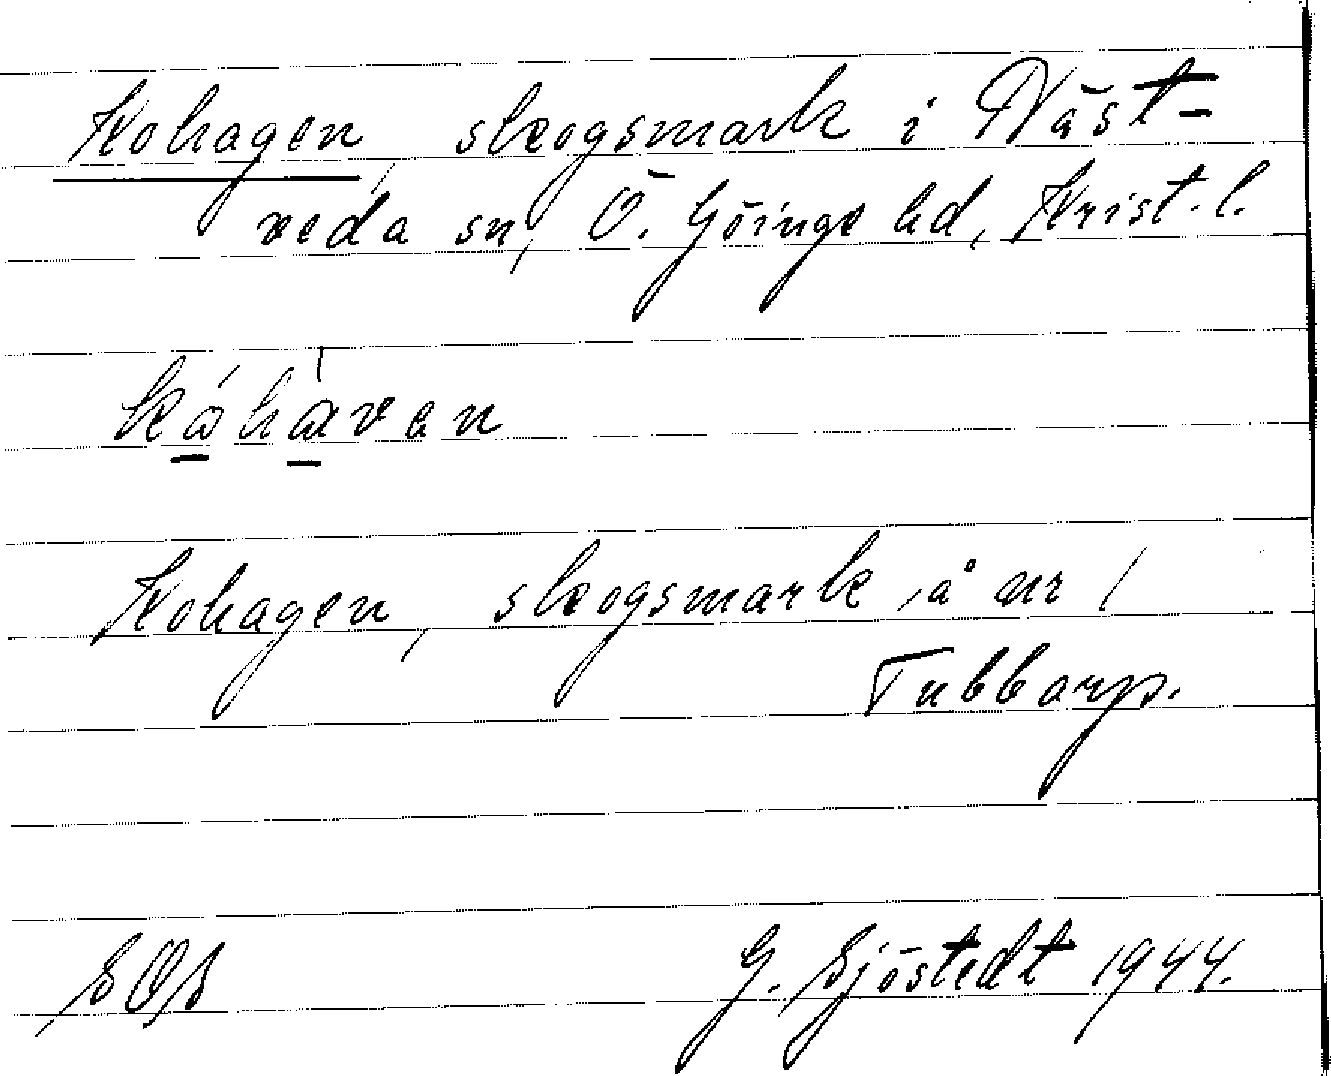 Kohagen, skogsmark i Väst-
veda sn, Ö. Göinge hd, Krist. l.
Kohagen, skogsmark å nr 1
Tubbarp.
SOS G. Sjöstedt 1944.